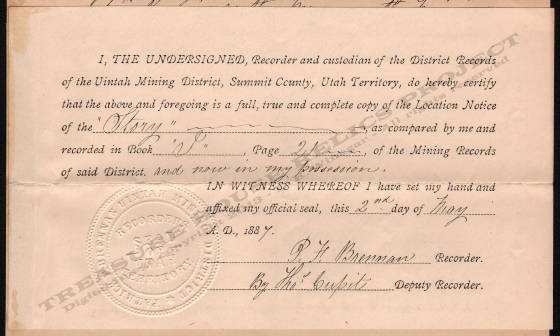 I, THE UNDERSIGNED, Recorder and custodian of the District Records
of the Uintah Mining District, Summit County, Utah Territory, do hereby certify
that the above and foregoing is a full, true and complete copy of the Location Notice
of the "Story", as compared by me and
recorded in Book "J", Page 21, of the Mining Records
of said District. and now in my possession.
IN WITNESS WHEREOF I have set my hand and
affixed my official seal, this 2nd day of May
A. D., 1887.
P. H. Brennan Recorder.
By Thos. Cupit Deputy Recorder.
UINTAH MINING DISTRICT
RECORDER
SEAL
TERRITORY
TREASURE RELICS PROJECT
all rights reserved